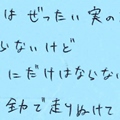 は ぜったい 実の
らないけど
にだけはならない
全力で走りぬけて